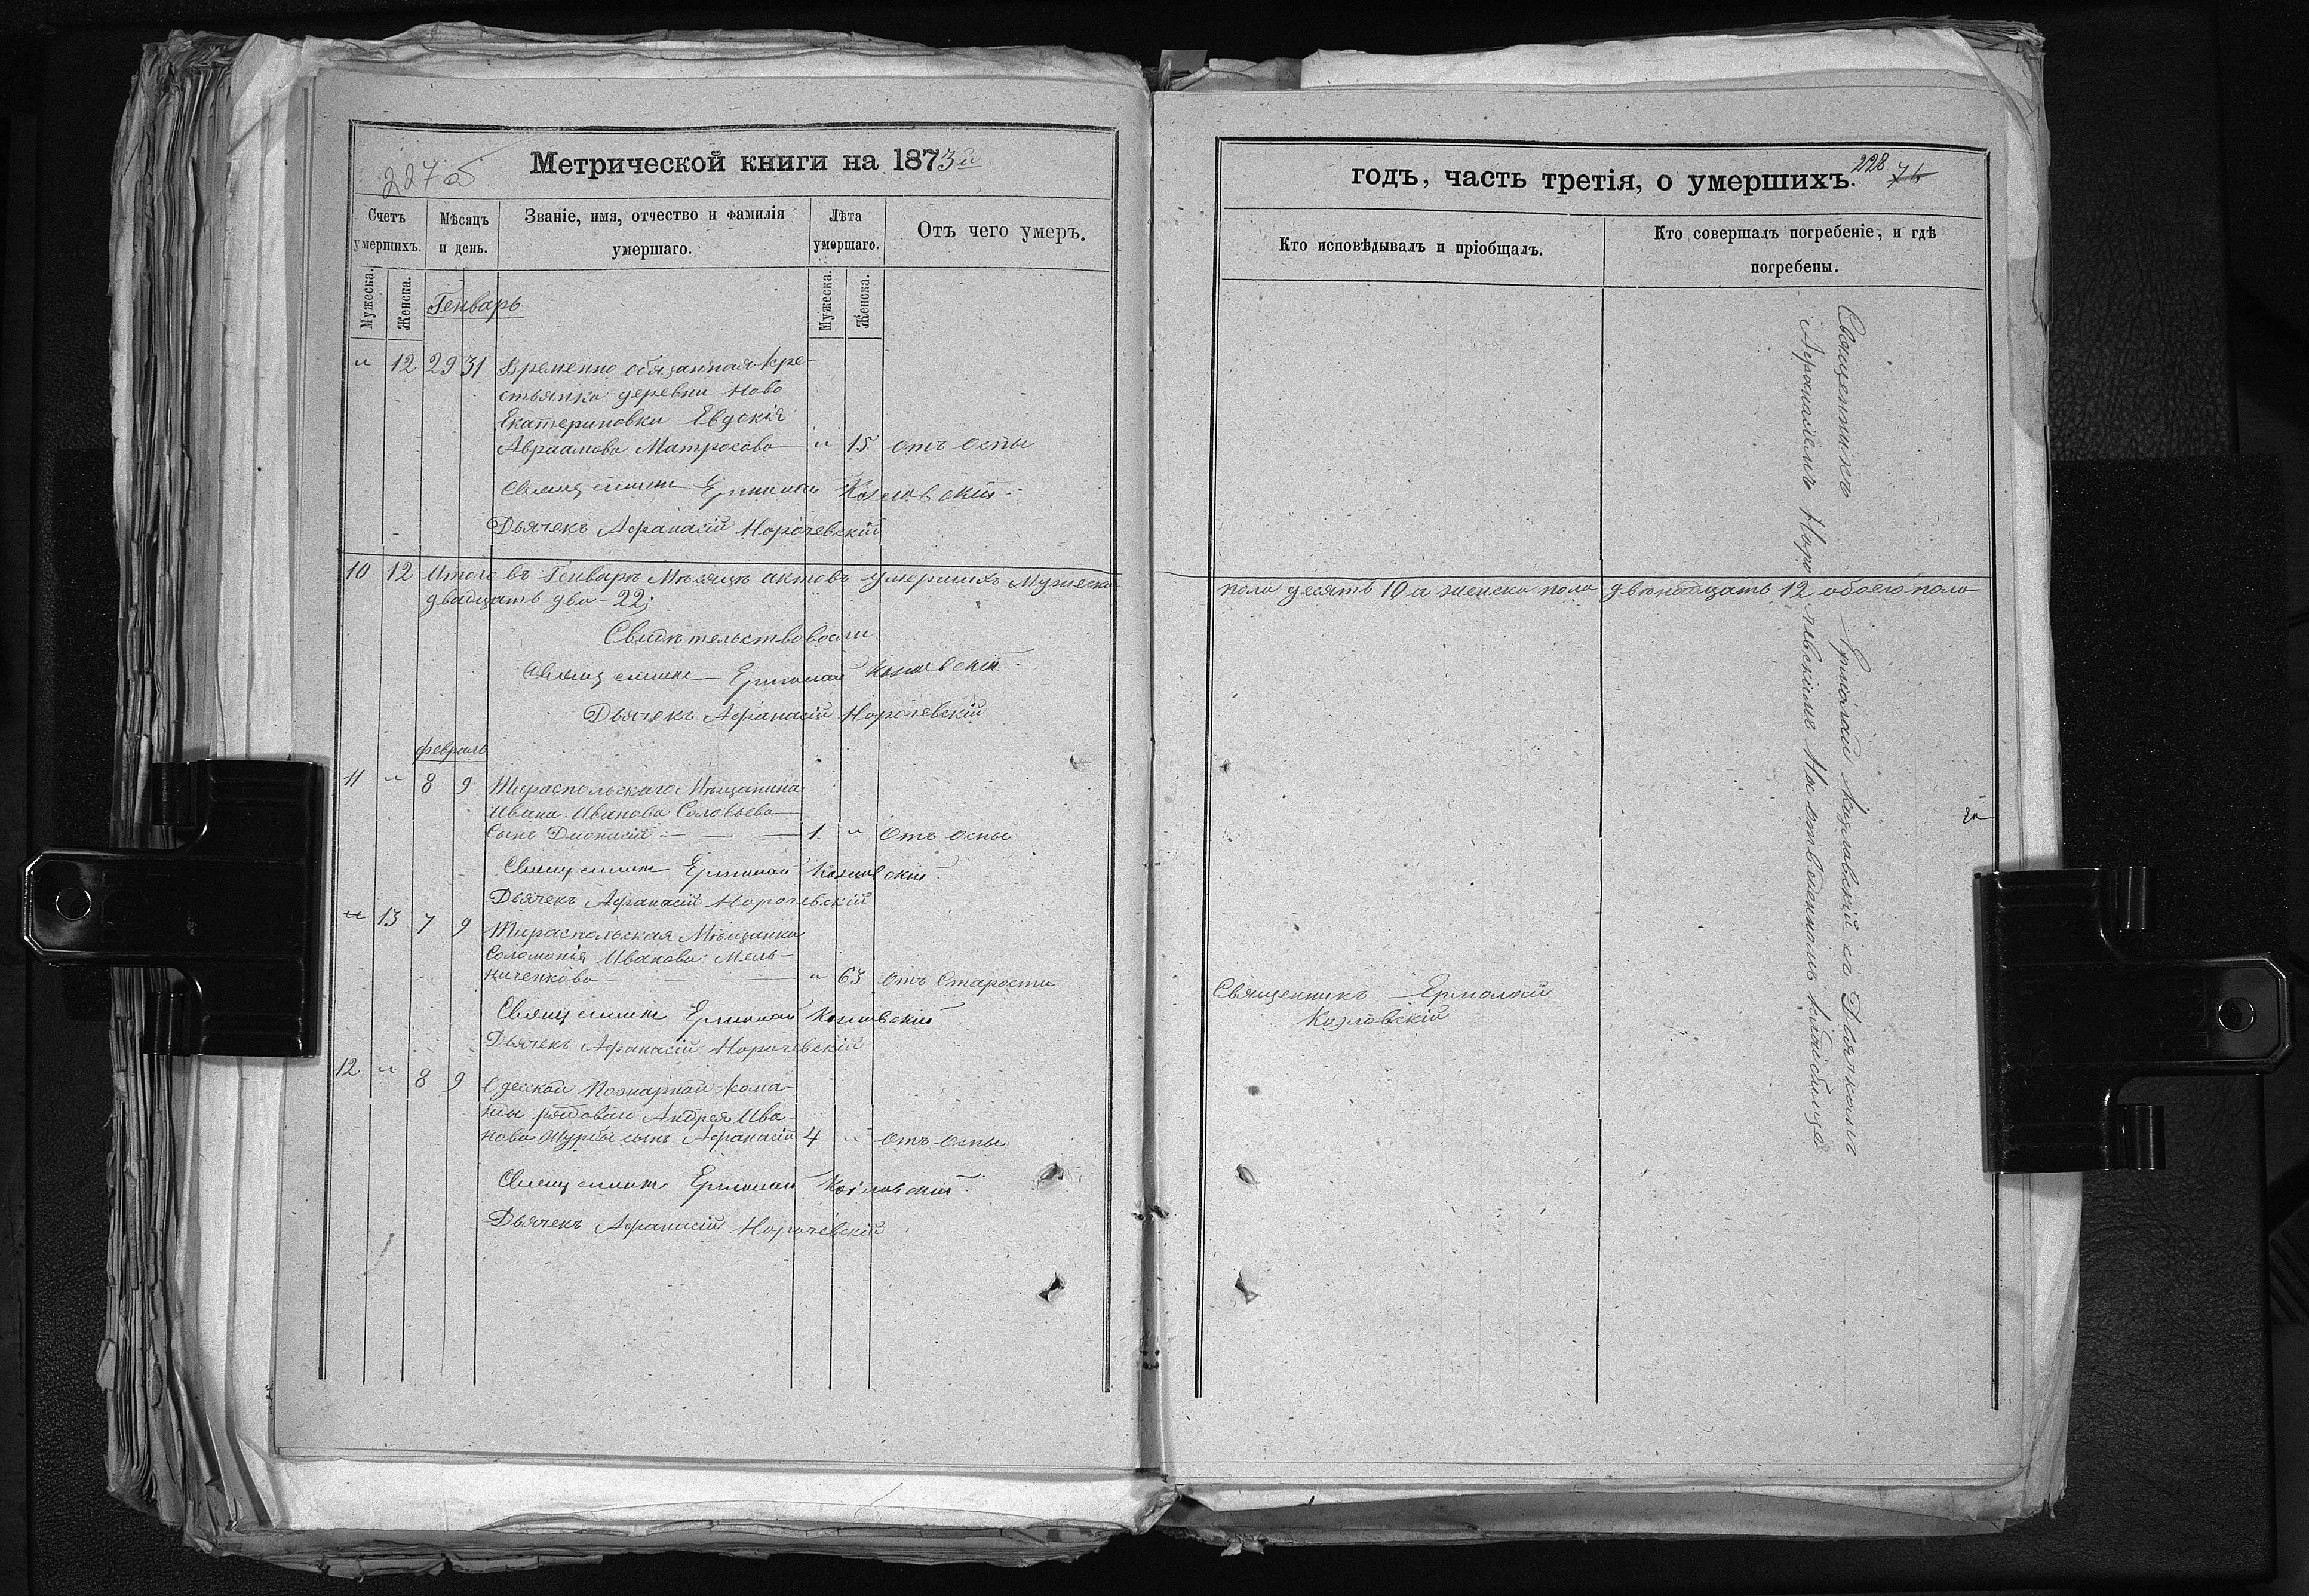 227 об
Метрической книги на 1873й
Счетъ умершихъ.
Мѣсяцъ и день.
Званіе, имя, отчество и фамилія умершаго.
Лѣта умершаго.
Отъ чего умеръ.
Мужеска.
Женска.
Мужеска.
Женска.
Генварь
" 12 29 31 Временно обязанная кре-
стьянка деревни Ново
Екатериновки Евдокія
Авраамова Матросова " 15 отъ оспы
Священникъ Ермолай Козловскій
Дьячекъ Афанасій Норочевскій
10 12 Итого въ Генварѣ Мѣсяцѣ актовъ умершихъ Мужеска
двадцать два - 22;
Свидѣтельствовали
Священникъ Ермолай Козловскій
Дьячекъ Афанасій Норочевскій
февраль
11 " 8 9 Тираспольскаго Мѣщанина
Ивана Иванова Соловьева
Сынъ Дионисій 1 " Отъ оспы
Священникъ Ермолай Козловскій
Дьячекъ Афанасій Норочевскій
" 13 7 9 Тираспольская Мѣщанка
Соломонія Иванова Мель-
ниченкова " 63 отъ Старости
Священникъ Ермолай Козловскій
Дьячекъ Афанасій Норочевскій
12 " 8 9 Одесской Пожарной кома-
нды рядоваго Андрея Ива-
нова сынъ Афанасій 4 " отъ оспы
Священникъ Ермолай Козловскій
Дьячекъ Афанасій Норочевскій
228 76
годъ, часть третія, о умершихъ.
Кто исповѣдывалъ и пріобщалъ.
Кто совершалъ погребеніе, и гдѣ погребены.
пола десять 10 а женска пола двѣнадцать 12 обоего пола
Священникъ Ермолай
Козловскій
Священникъ Ермолай Козловскій съ Дьячкомъ
Афанасіемъ Норочевскимъ На отведенномъ кладбищѣ